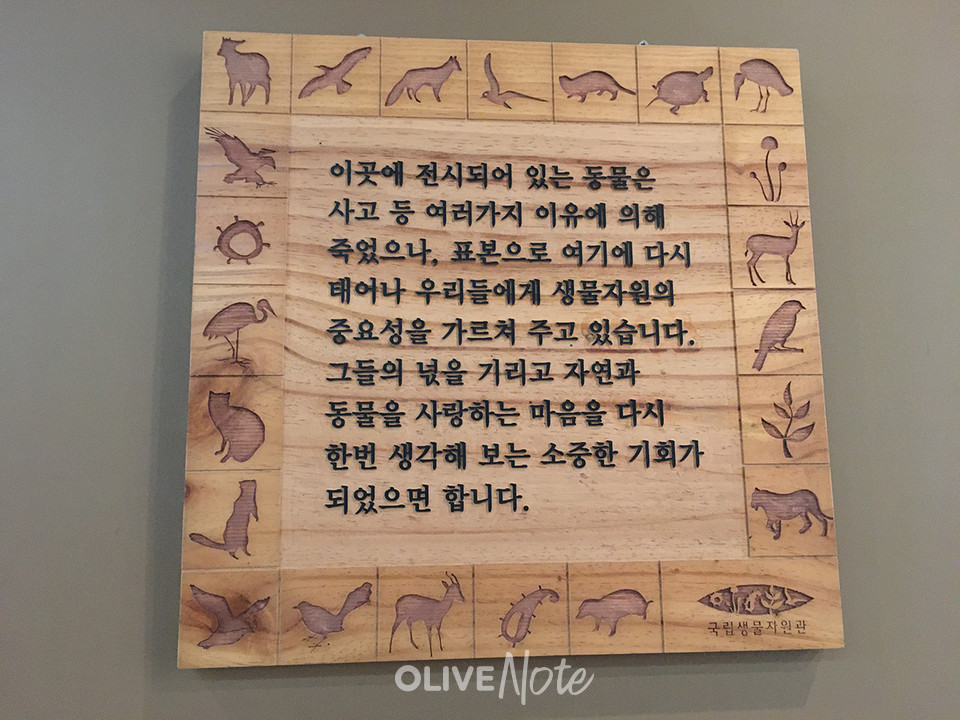 이곳에 전시되어 있는 동물은
사고 등 여러가지 이유에 의해
죽었으나, 표본으로 여기에 다시
태어나 우리들에게 생물자원의
중요성을 가르쳐 주고 있습니다.
그들의 넋을 기리고 자연과
동물을 사랑하는 마음을 다시
한번 생각해 보는 소중한 기회가
되었으면 합니다.
국립생물자원관
OLIVE Note